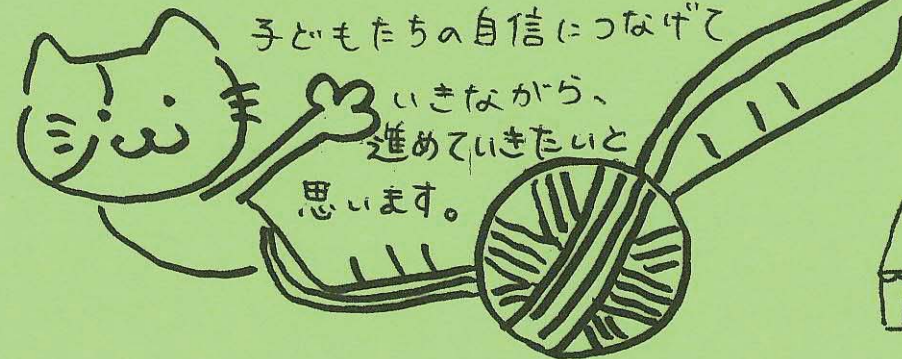 子どもたちの自信につなげて
いきながら、
進めていきたいと
思います。